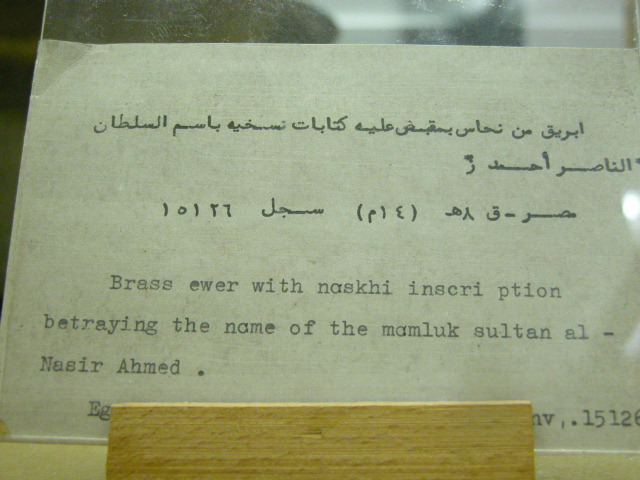 ابريق من نحاس بمقبض عليه كتابات نسخيه باسم السلطان
"الناصر أحمد"
مصر - ق ٨هـ (١٤م) سجل ١٥١٢٦
Brass ewer with naskhi inscri ption
betraying the name of the mamluk sultan al -
Nasir Ahmed .
Eg nv,.15126